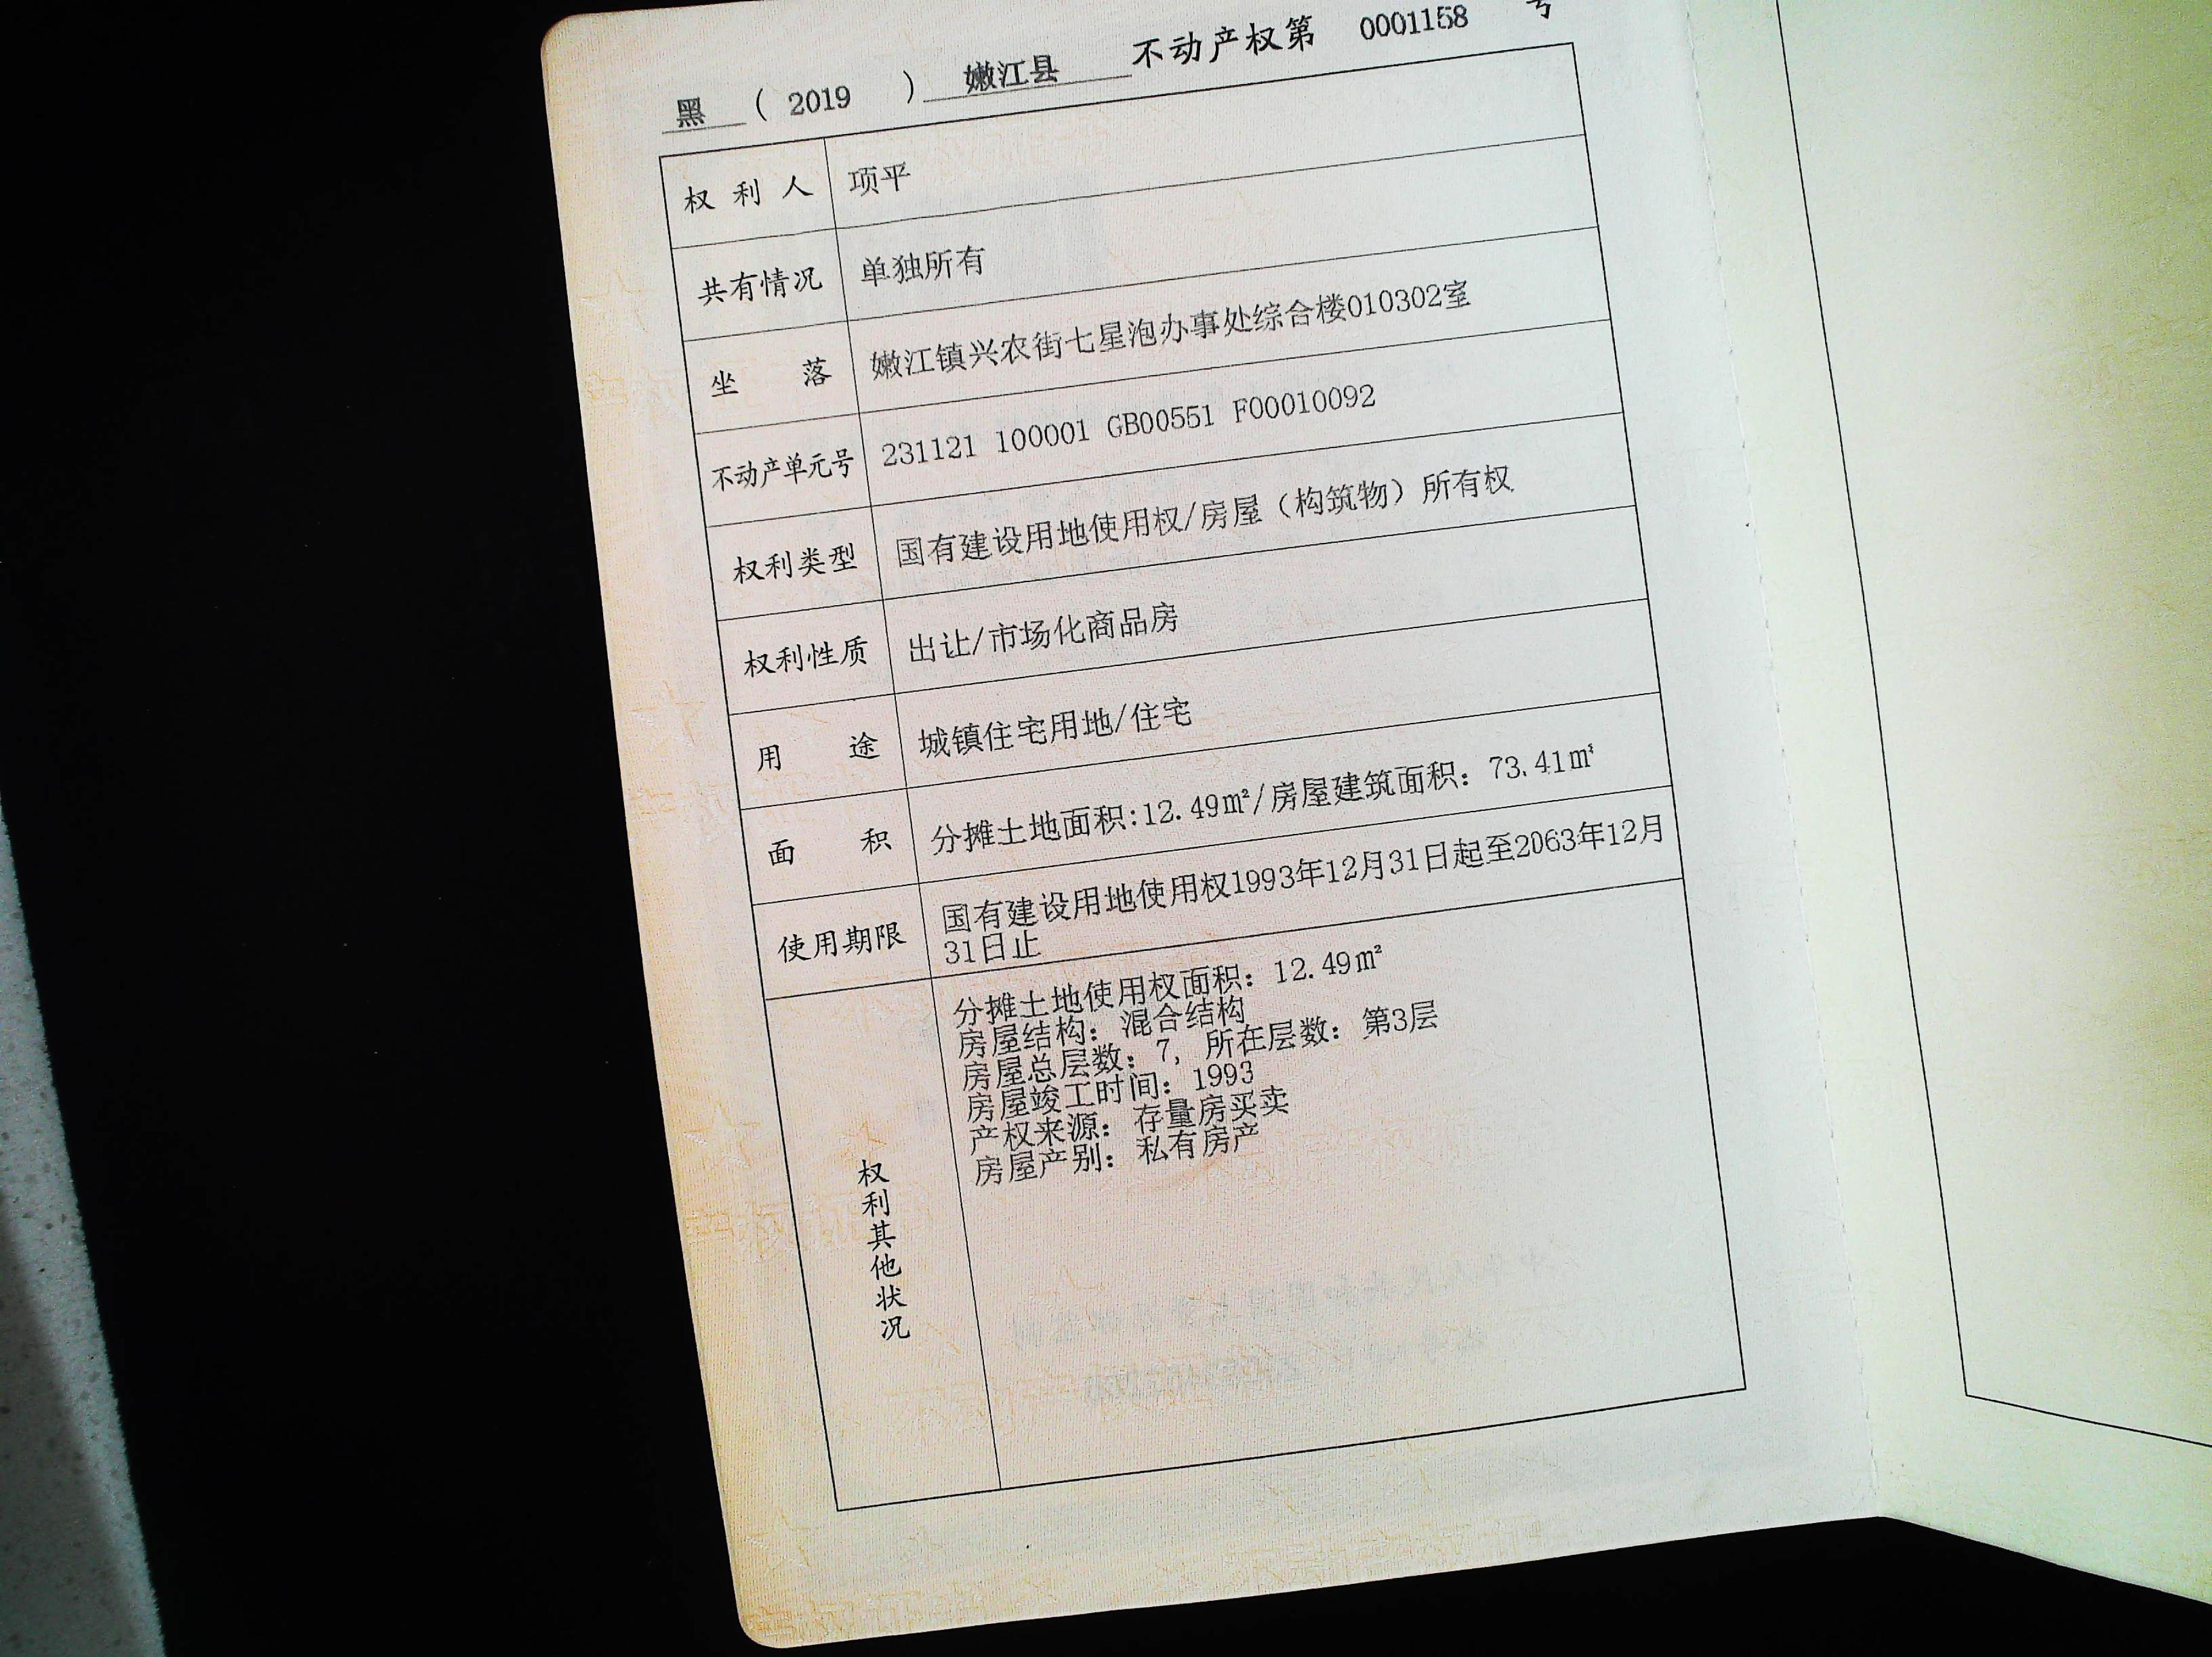 黑 ( 2019 ) 嫩江县 不动产权第 0001158 号
权利人 项平
共有情况 单独所有
坐落 嫩江镇兴农街七星泡办事处综合楼010302室
不动产单元号 231121 100001 GB00551 F00010092
权利类型 国有建设用地使用权/房屋（构筑物）所有权
权利性质 出让/市场化商品房
用途 城镇住宅用地/住宅
面积 分摊土地面积:12.49㎡/房屋建筑面积：73.41㎡
使用期限 国有建设用地使用权1993年12月31日起至2063年12月
31日止
权利其他状况
分摊土地使用权面积：12.49㎡
房屋结构：混合结构
房屋总层数：7，所在层数：第3层
房屋竣工时间：1993
产权来源：存量房买卖
房屋产别：私有房产